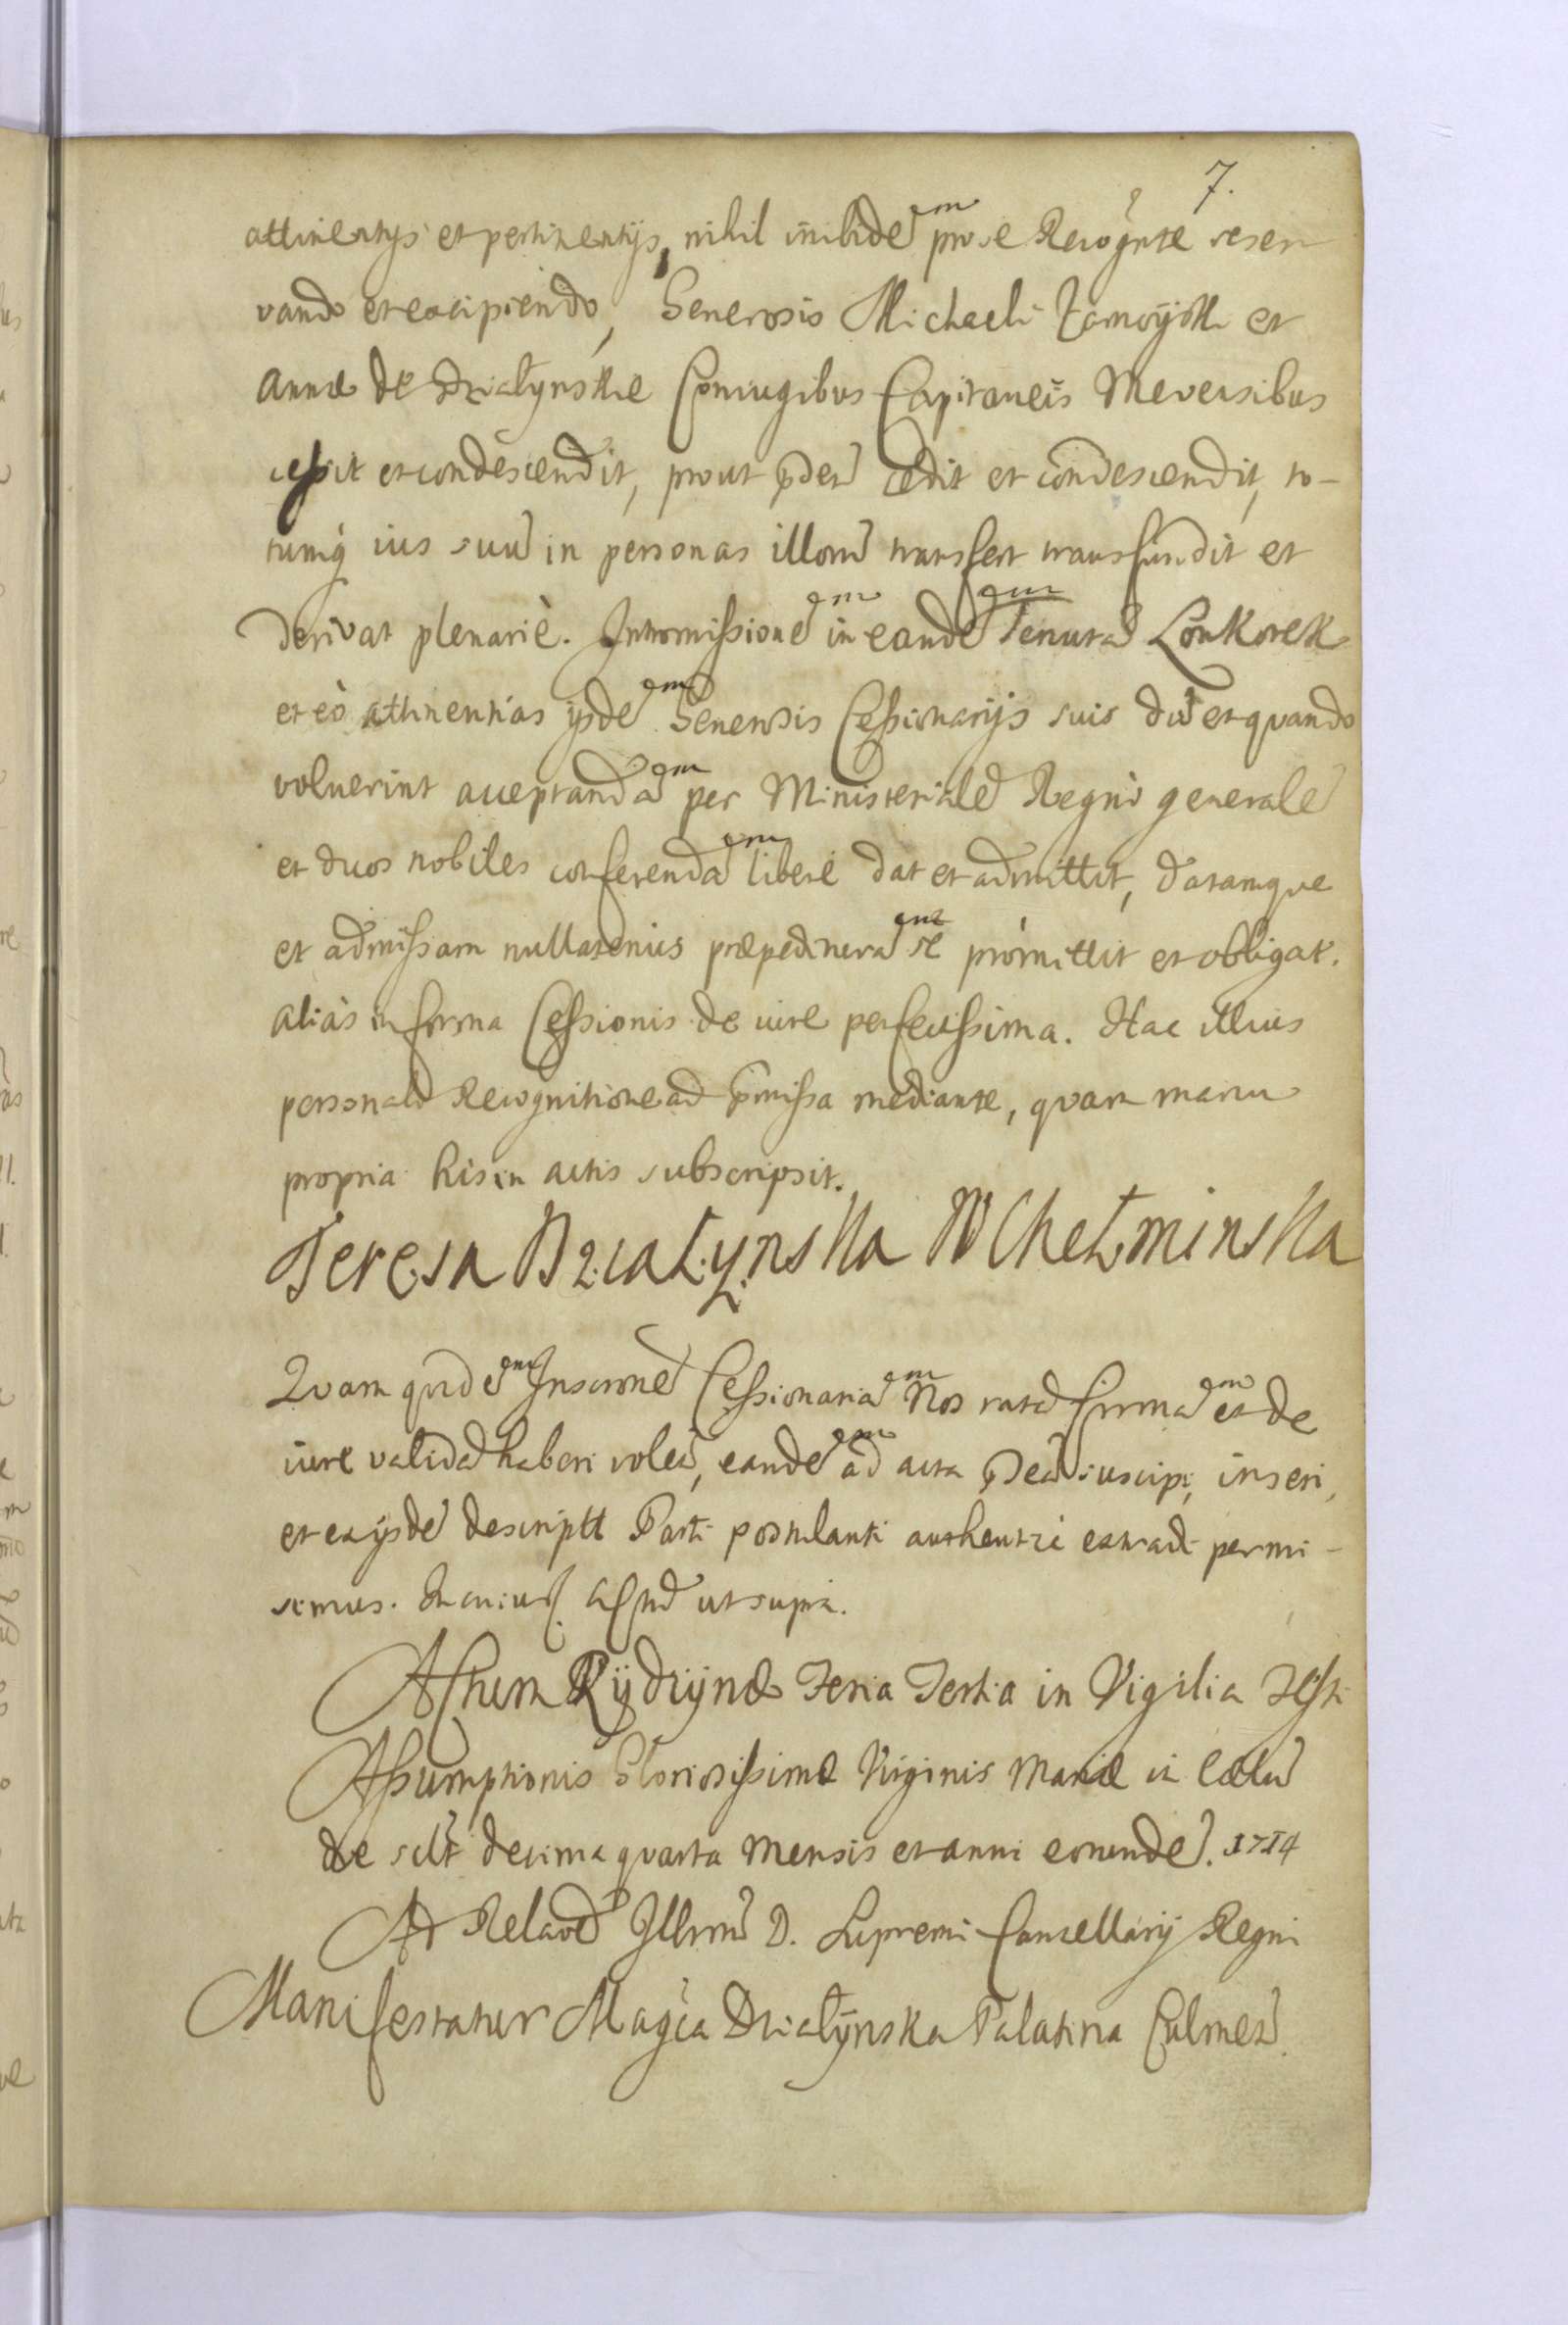 7.
attinentijs et pertinentijs, nihil inibide em pro se Recognte reser
vando et excipiendo, Generosis Michaeli Zamoÿski et
Annæ de Działynskie Coniugibus Capitaneis Mevensibus
cessit et condescendit, prout cedit et condescendit, to-
tumq ius suu in personas illoru transfert transfundit et
derivat plenariè. Intromissione em in eande em Tenuta Lonkorek
et eò attinentias ijsde em Generosis Cessionarijs suis du et quando
voluerint acceptanda em per Ministeriale Regni generale
et duos nobiles conferenda em liberè dat et admittit, datamque
et admissam nullatenus præpeditura em se promittit et obligat.
alias in forma Cessionis de iure perfectissima. Hac illius
personali Recognitione ad pmissa mediante, quam manu
propria his in actis subscripsit.
Teresa Działynska W Chełminska
Quam quide em Inscrone Cessionaria em Nos rata firma em et de
iure valida haberi volen, eande em ad acta suscipi, inseri,
et ex ijsde descriptt Parti postulanti authentice extradi permi-
simus. Actu ut supra.
Actum Rÿdzÿnæ Feria Tertia in Vigilia Festi
Assumptionis Gloriosissimæ Virginis Mariæ in Cælu
die sclt decima quarta Mensis et anni eorunde. 1714
Ad Relaoe Illrmi D. Supremi Cancellarij Regni
Manifestatur Magca Działÿnska Palatina Culmen.